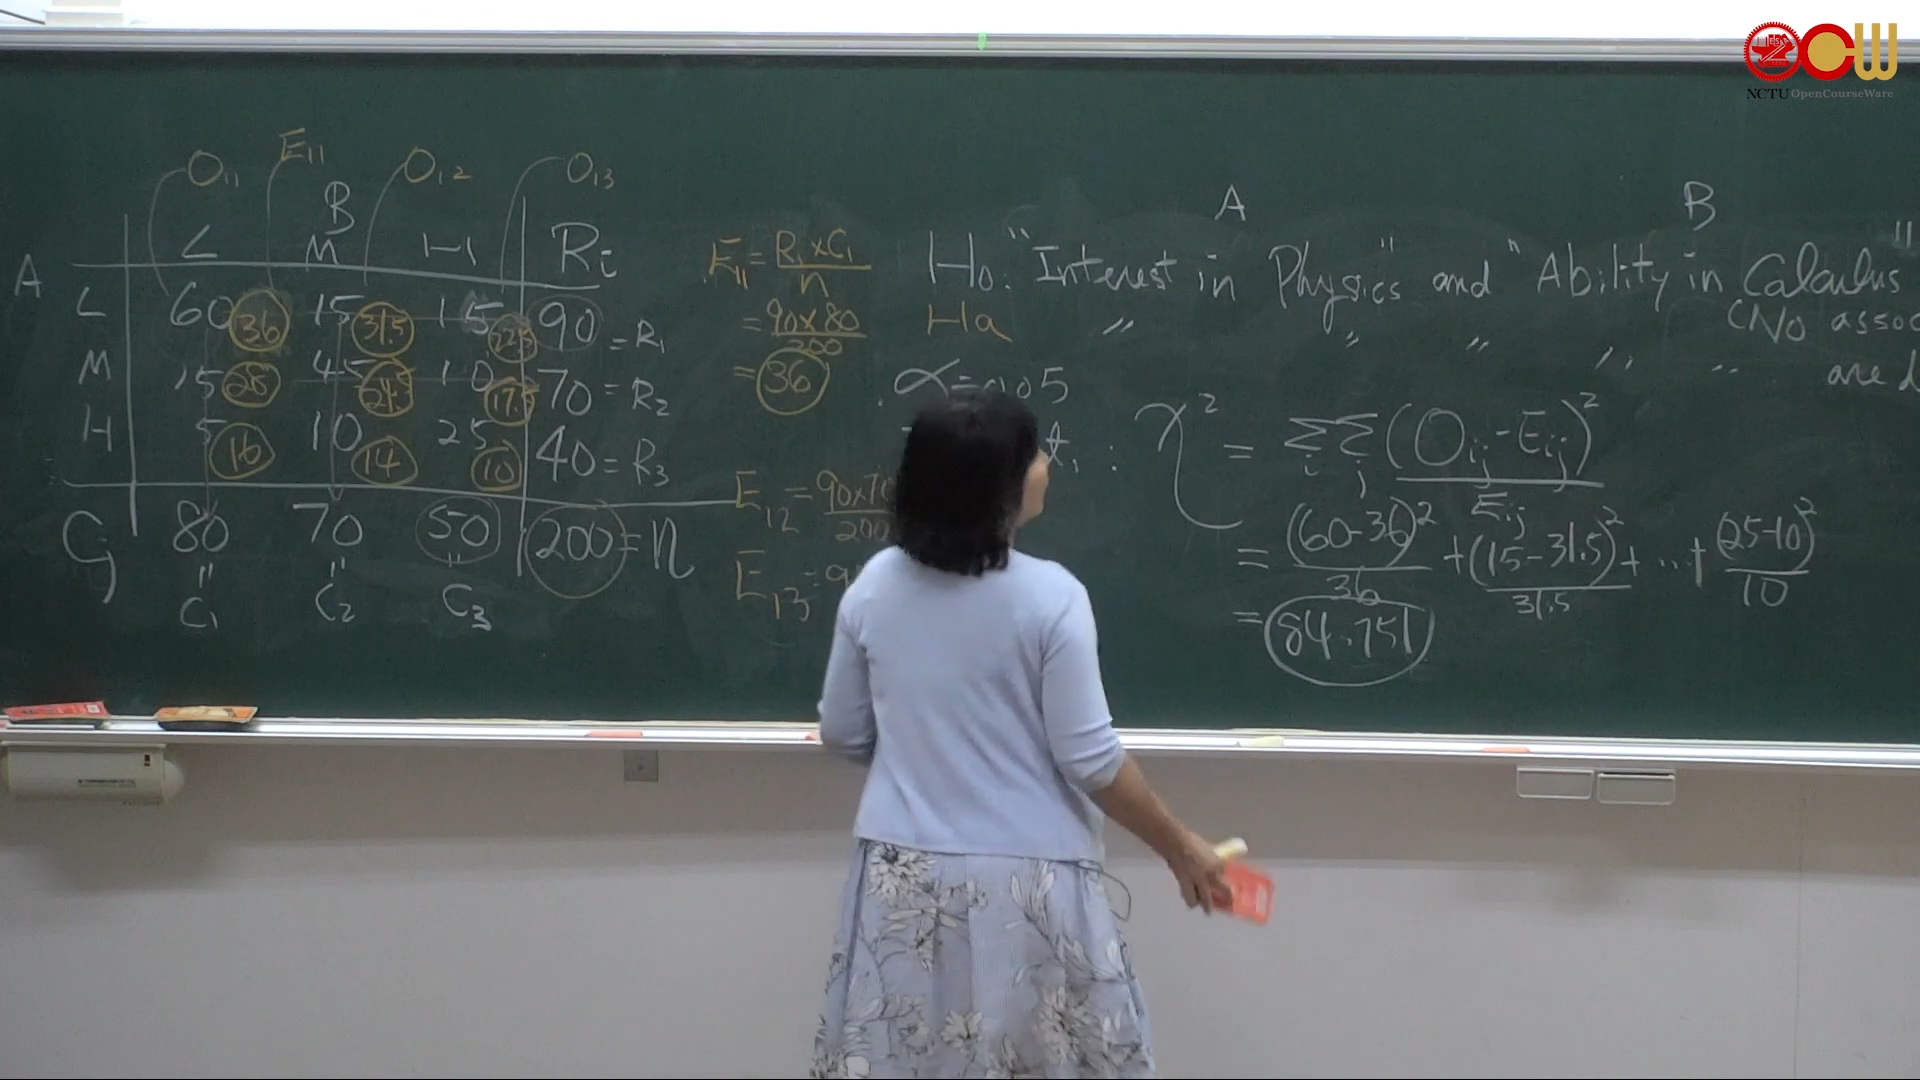 NCTU OpenCourseWare
O₁₁ E₁₁ O₁₂ O₁₃
B
L M H Ri
A
L 60 36 15 31.5 15 22.5 90 = R₁
M 15 28 45 24.5 10 17.5 70 = R₂
H 5 16 10 14 25 10 40 = R₃
Cj 80 70 50 200 = n
" " "
C₁ C₂ C₃
E₁₁ = R₁ × C₁ / n
= 90 × 80 / 200
= 36
E₁₂ = 90×70 / 200
E₁₃ = 9
A B
H₀: "Interest in Physics" and "Ability in Calculus"
(No assoc
Ha " " " " "
are
α = 0.05
: χ² = Σi Σj (Oij - Eij)² / Eij
= (60-36)² / 36 + (15-31.5)² / 31.5 + ... + (25-10)² / 10
= 84.751